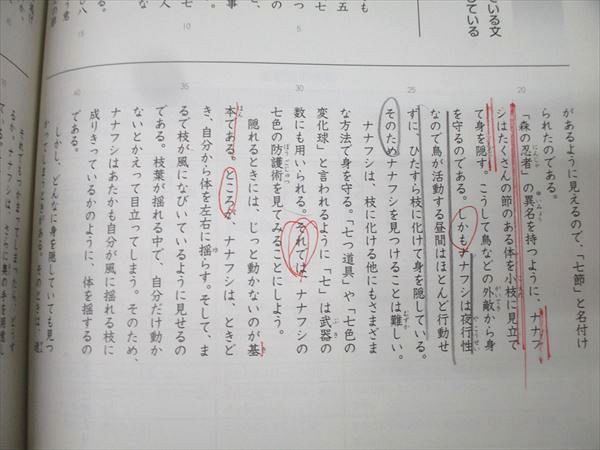 があるように見えるので、「七節」と名付け
られたのである。
「森の忍者」の異名を持つように、ナナフ
シはたくさんの節のある体を小枝に見立て
て身を隠す。こうして鳥などの外敵から身
を守るのである。しかもナナフシは夜行性
なので鳥が活動する昼間はほとんど行動せ
ずに、ひたすら枝に化けて身を隠している。
そのためナナフシを見つけることは難しい。
ナナフシは、枝に化ける他にもさまざま
な方法で身を守る。「七つ道具」や「七色の
変化球」と言われるように「七」は武器の
数にも用いられる。それでは、ナナフシの
七色の防護術を見てみることにしよう。
隠れるときには、じっと動かないのが基
本である。ところが、ナナフシは、ときど
き、自分から体を左右に揺らす。そして、ま
るで枝が風になびいているように見せるの
である。枝葉が揺れる中で、自分だけ動か
ないとかえって目立ってしまう。そのため、
ナナフシはあたかも自分が風に揺れる枝に
成りきっているかのように、体を揺するの
である。
しかし、どんなに身を隠していても見つ
かってしまうことがある。そのときは、
20
25
30
35
40
5
10
15